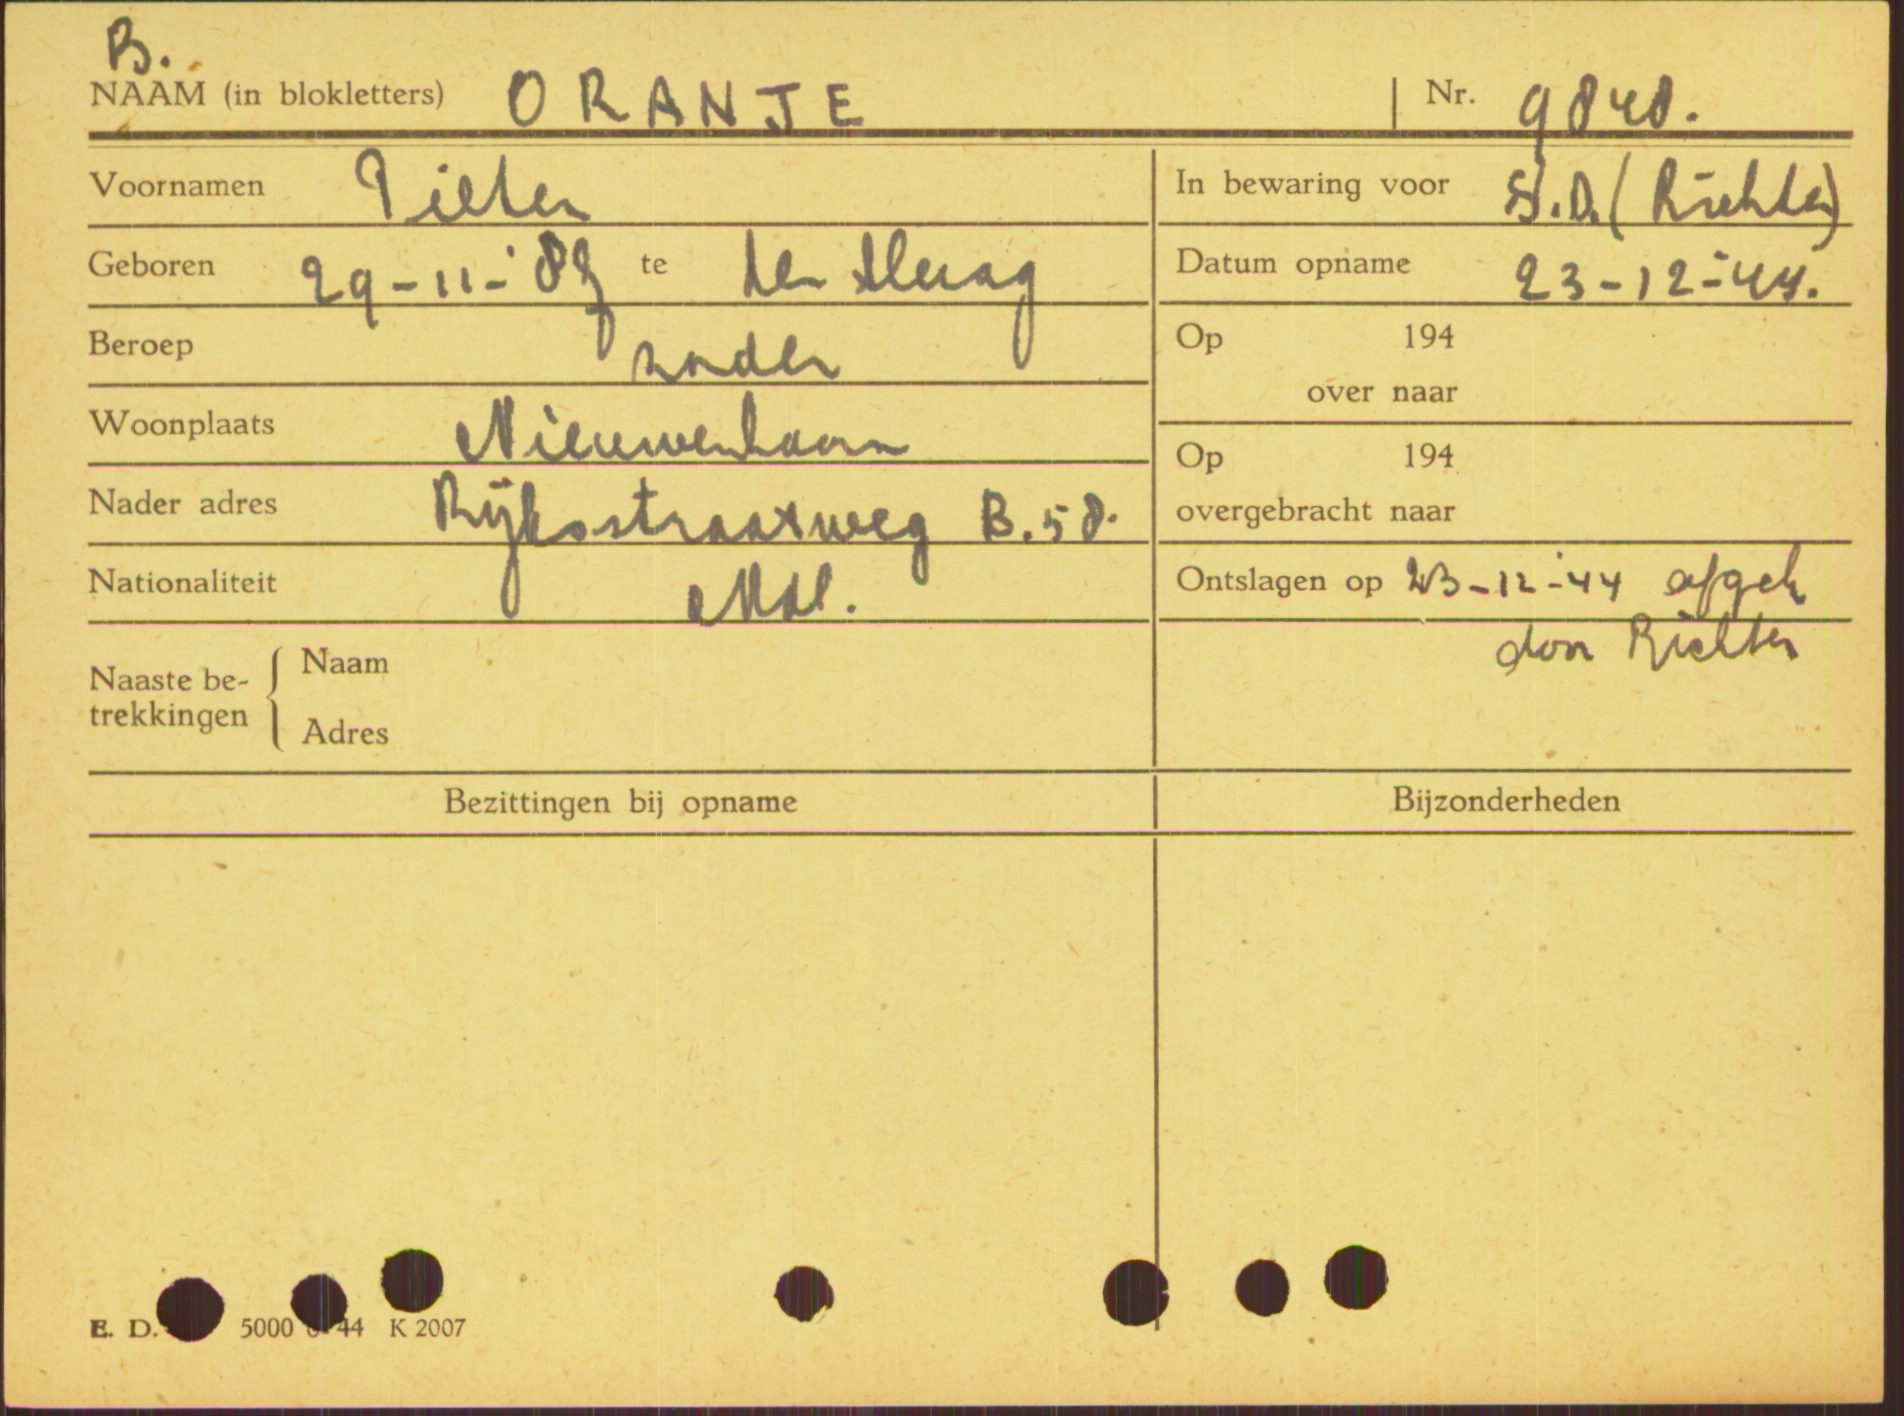 B.
NAAM (in blokletters) ORANJE
Nr. 9848.
Voornamen Pieter
In bewaring voor S.D. (Richter)
Geboren 29-11-'89 te den Haag
Datum opname 23-12-'44.
Beroep zonder
Op 194
over naar
Woonplaats Nieuwenhoorn
Op 194
overgebracht naar
Nader adres Rijksstraatweg B.58.
Nationaliteit Ndl.
Ontslagen op 23-12-'44 afgeh
door Richter
Naaste be-
trekkingen
Naam
Adres
Bezittingen bij opname
Bijzonderheden
E. D. 5000 44 K 2007